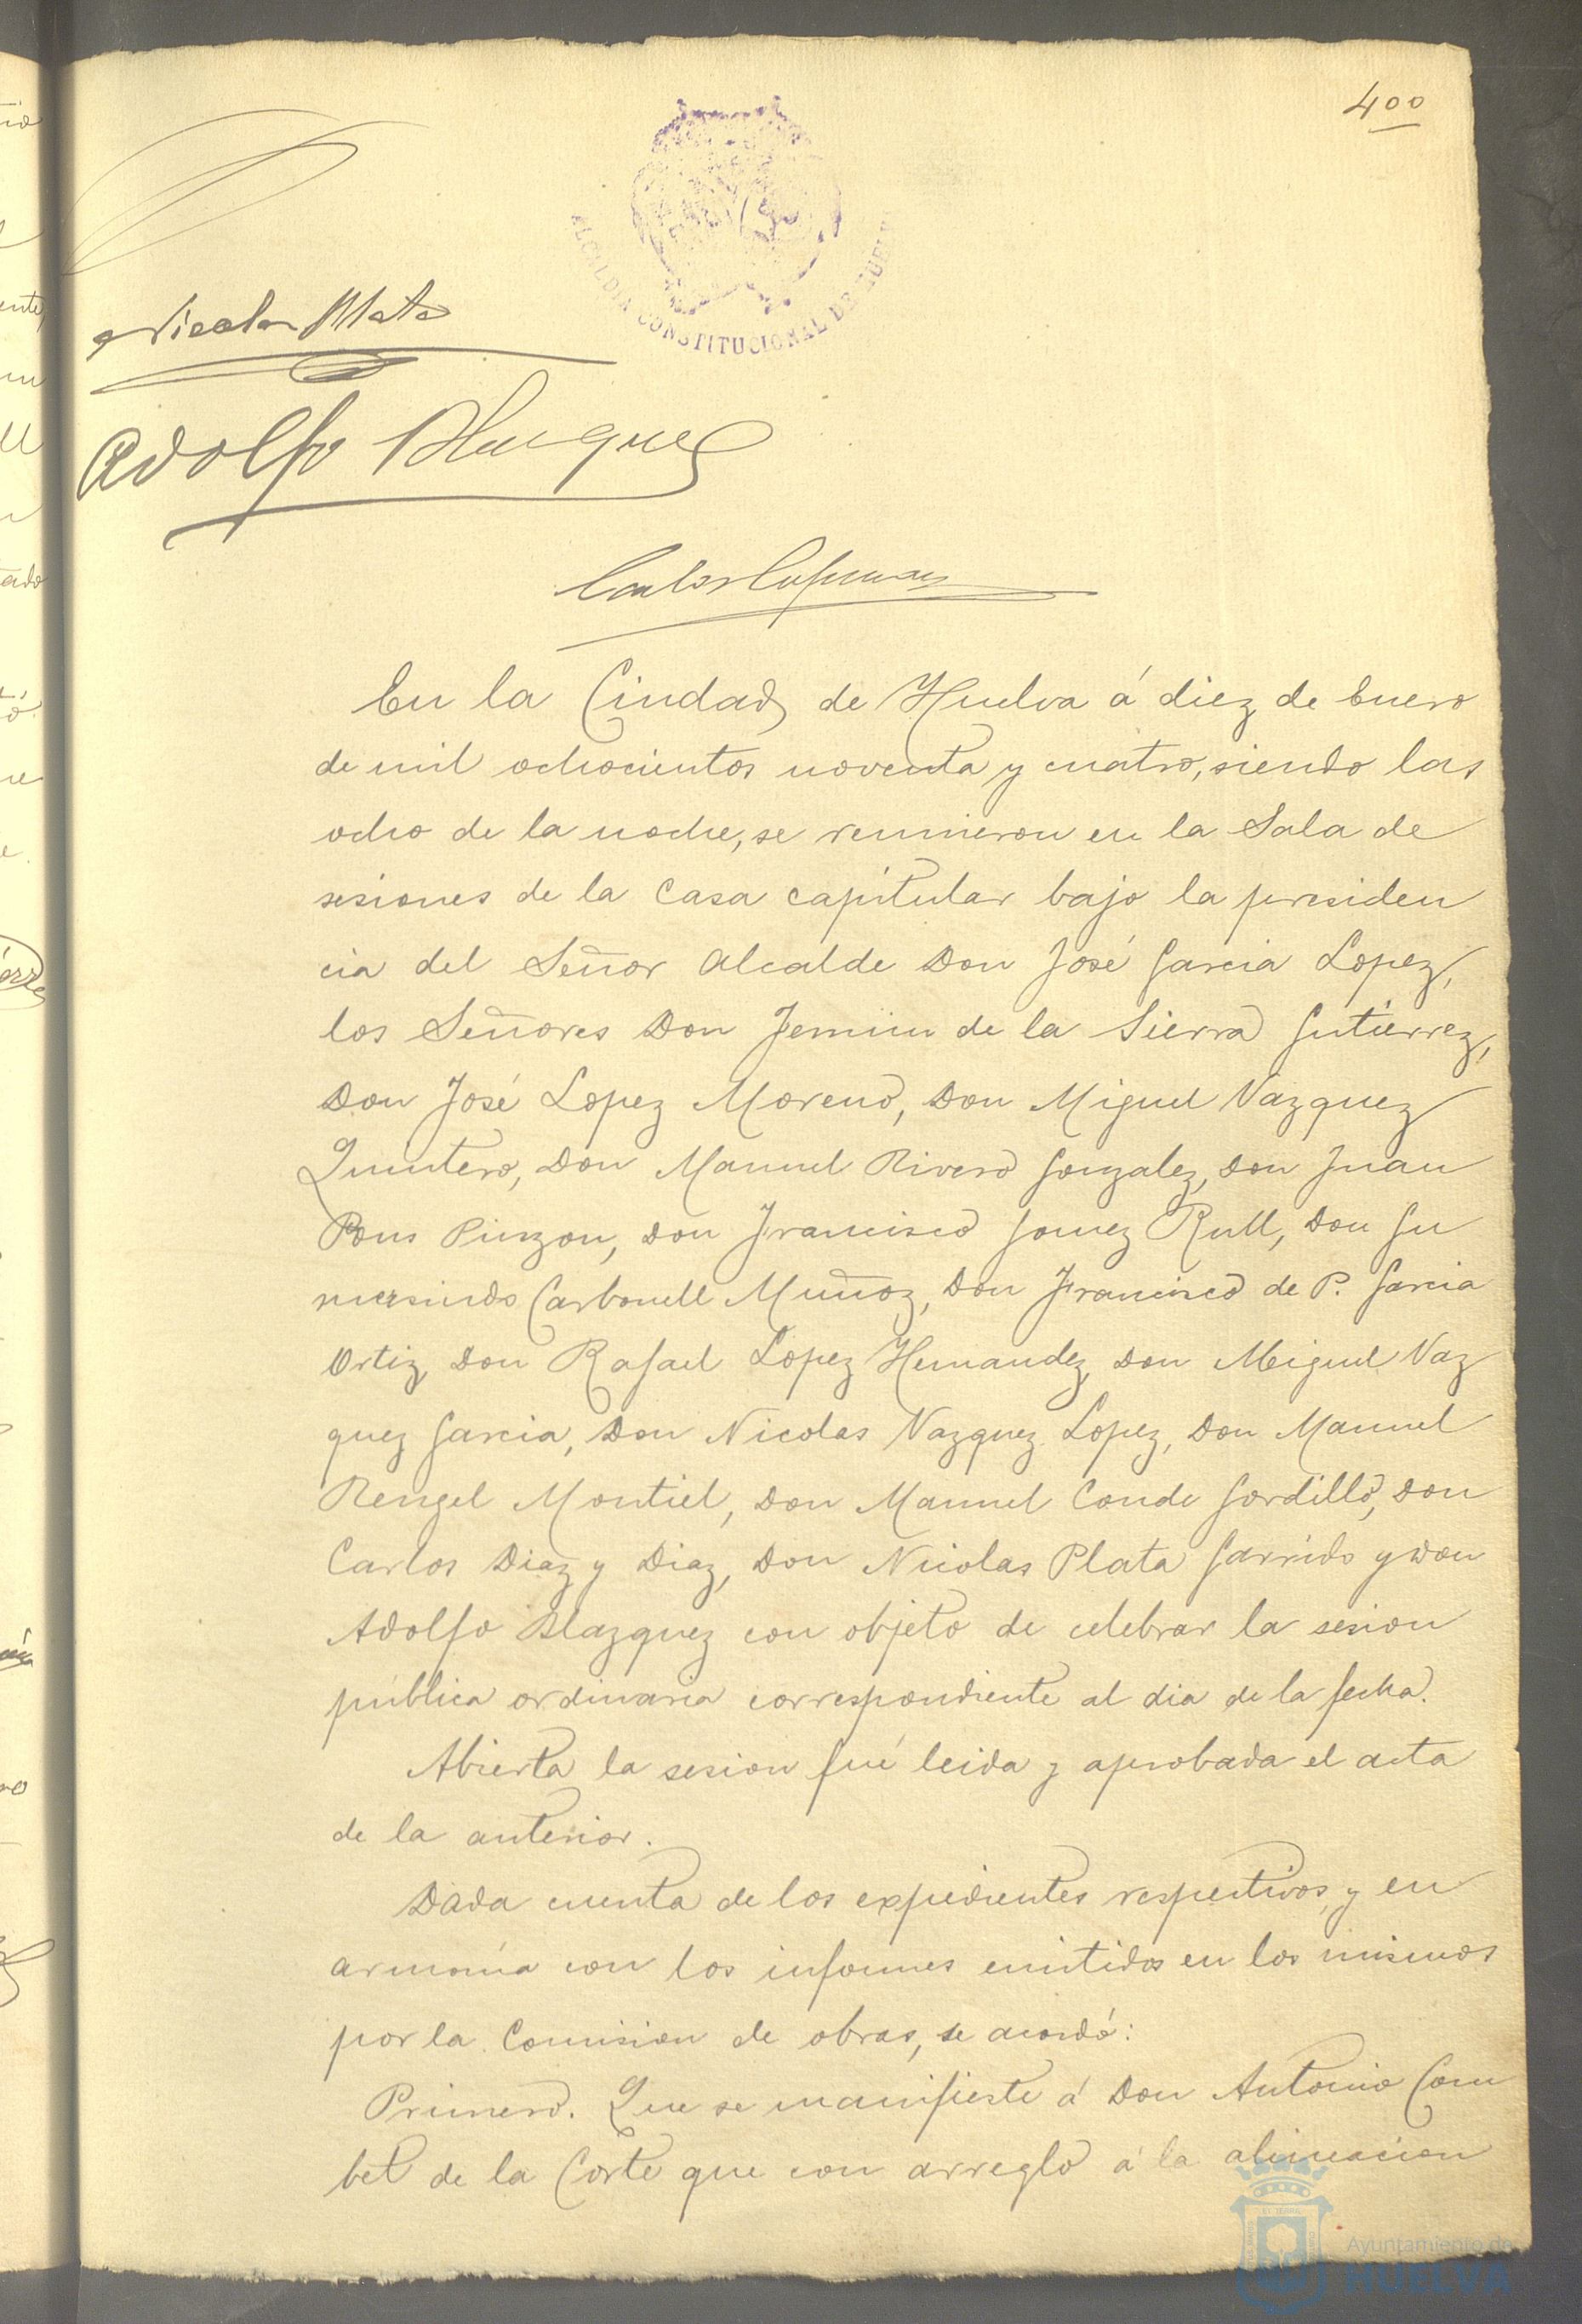 400
ALCALDIA CONSTITUCIONAL DE HUELVA
Nicolas Plata
Adolfo Blazquez
Carlos
En la Ciudad de Huelva á diez de Enero
de mil ochocientos noventa y cuatro, siendo las
ocho de la noche, se reunieron en la Sala de
sesiones de la Casa capitular bajo la presiden
cia del Señor Alcalde Don José Garcia Lopez,
los Señores Don Fermin de la Sierra Gutierrez,
Don José Lopez Moreno, Don Miguel Vazquez
Quintero, Don Manuel Rivero Gonzalez, Don Juan
Pons Pinzon, Don Francisco Gomez Rull, Don Gu
mersindo Carbonell Muñoz, Don Francisco de P. Garcia
Ortiz, Don Rafael Lopez Hernandez, Don Miguel Vaz
quez Garcia, Don Nicolas Vazquez Lopez, Don Manuel
Rengel Montiel, Don Manuel Conde Gordillo, Don
Carlos Diaz y Diaz, Don Nicolas Plata Garrido y Don
Adolfo Blazquez con objeto de celebrar la sesion
pública ordinaria correspondiente al dia de la fecha.
Abierta la sesion fué leida y aprobada el acta
de la anterior.
Dada cuenta de los expedientes respectivos, y en
armonía con los informes emitidos en los mismos
por la Comision de obras, se acordó:
Primero. Que se manifieste á Don Antonio Com
bet de la Corte que con arreglo á la alineacion
Ayuntamiento de
HUELVA